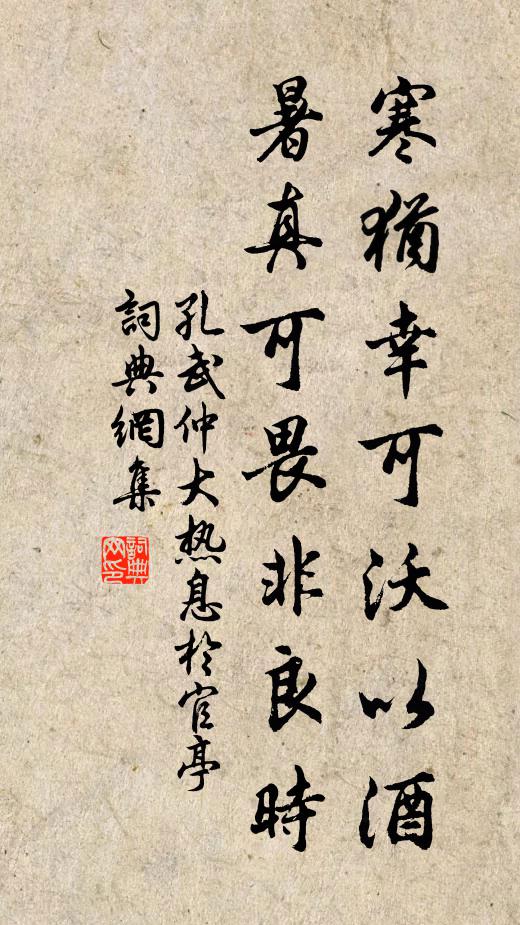 寒猶幸可沃以酒
暑真可畏非良時
孔武仲大热息於官亭
詞典網集
詞典
网印